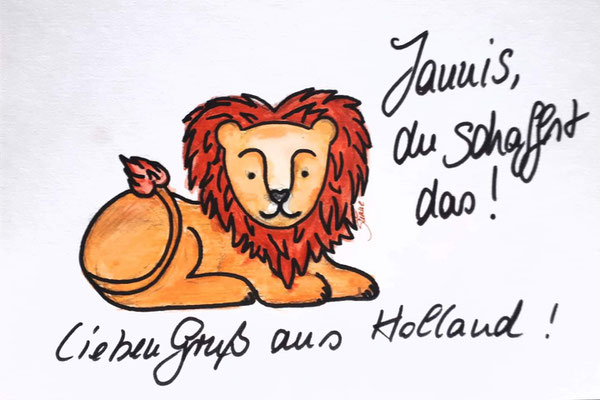 Jannis,
du schaffst
das!
Lieben Gruß aus Holland!